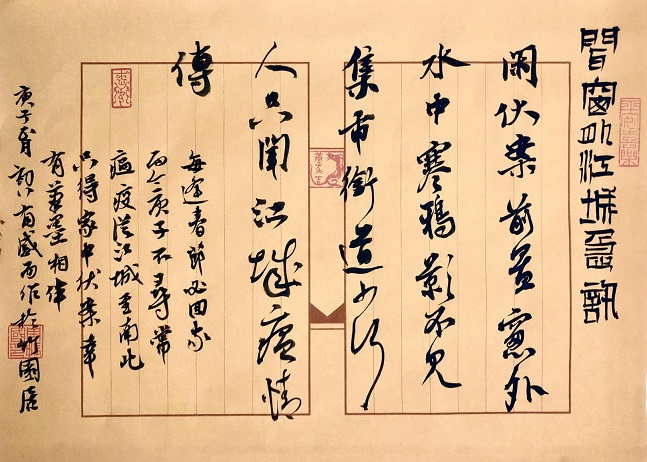 窗江城急訊
閑伏案前窗外
水中寒鴉影不見
集市街道少行
人只聞江城瘟情
傳
每逢春節必回家
而今庚子不尋常
瘟疫從江城至南北
只得家中伏案幸
有筆墨相伴
庚子有感而作於竹園居